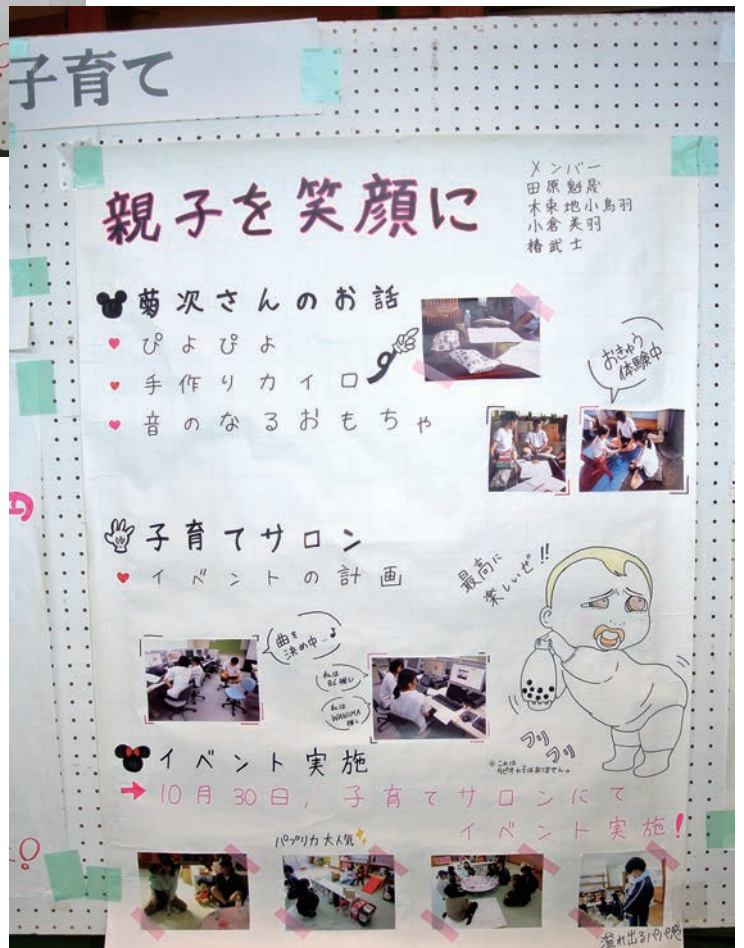 子育て
親子を笑顔に
メンバー
田原魁晟
木東地小鳥羽
小倉美羽
椿武士
菊次さんのお話
ぴよぴよ
手作りカイロ
音のなるおもちゃ
おきゅう
体験中
子育てサロン
イベントの計画
最高に
楽しいぜ!!
曲を
決め中…♪
私は
推し
私は
WANIMA
推し
フリ
フリ
※これは
タピオカではありません。
イベント実施
➡10月30日,子育てサロンにて
イベント実施!
パプリカ大人気
溢れ出るパパ感